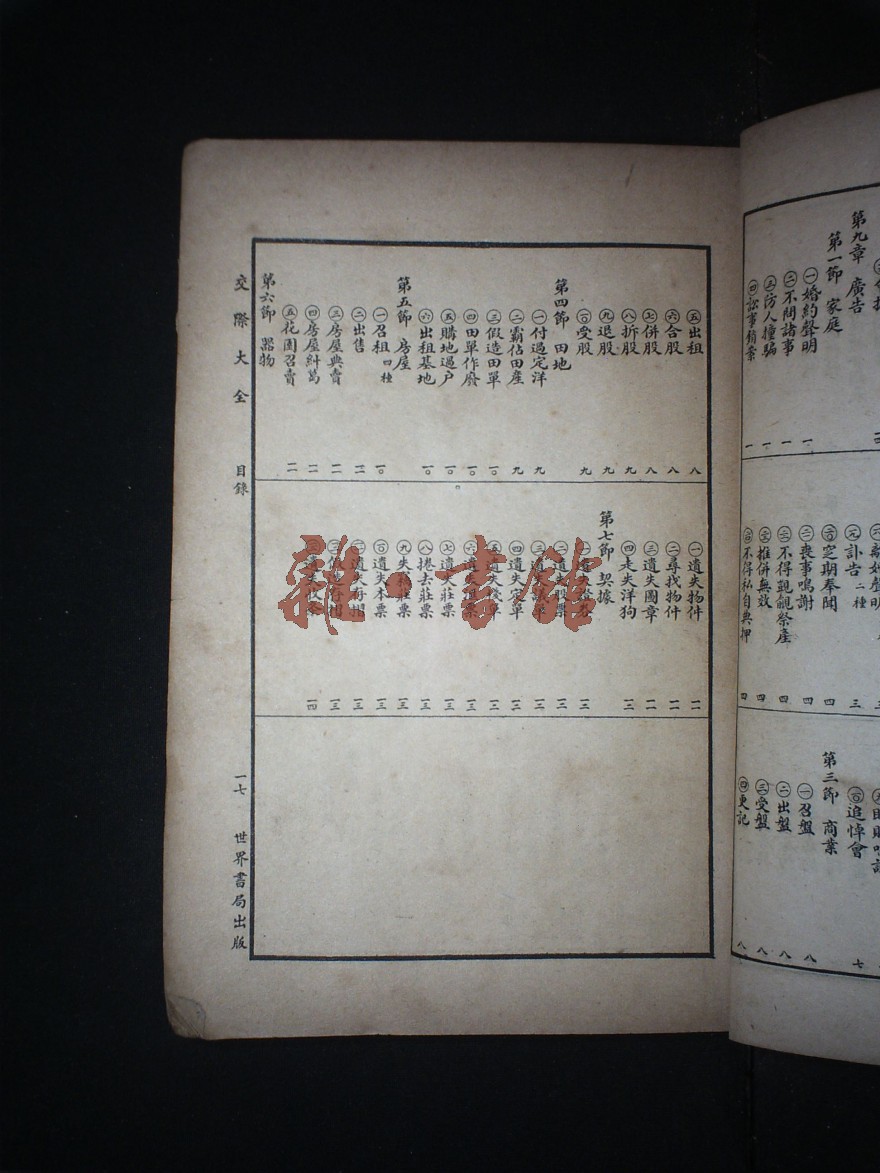 第九章 廣告
第一節 家庭
㊀婚約聲明 一
㊁不問諸事 一
㊂防人撞騙 一
㊃訟事銷案 一
訃告 二種 三
空期奉聞 四
喪事鳴謝 四
不得覬覦祭產 四
推併無效 四
不得私自典押 四
追悼會 七
第三節 商業
㊀召盤 八
㊁出盤 八
㊂受盤 八
㊃更記 八
㊄出租 八
㊅合股 八
㊆併股 八
㊇拆股 九
㊈退股 九
受股 九
第四節 田地
㊀付過定洋 九
㊁霸佔田產 九
㊂假造田單 一〇
㊃田單作廢 一〇
㊄購地過户 一〇
㊅出租基地 一〇
第五節 房屋
㊀召租 四種 一〇
㊁出售 一一
㊂房屋典賣 一一
㊃房屋糾葛 一一
㊄花園召賣 一一
第六節 器物
㊀遺失物件 一一
㊁尋找物件 一一
㊂遺失圖章 一一
㊃走失洋狗 一二
第七節 契據
遺失股票
遺失定單
遺失
捲去莊票 一三
失
遺失本票 一三
交際大全 目錄 一七 世界書局出版
雜·書館